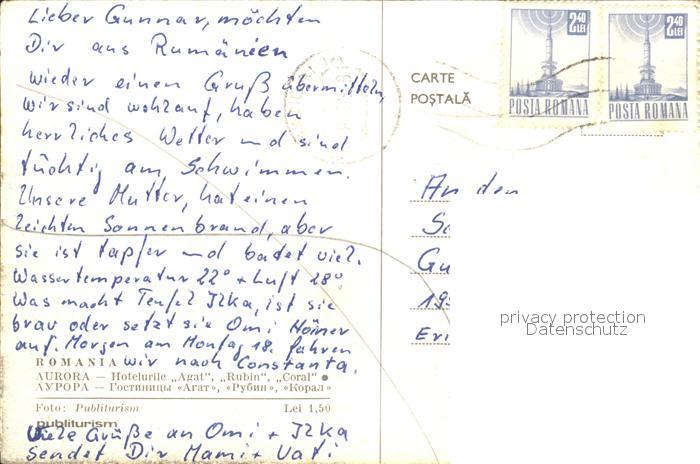 Lieber Gunnar, möchten
Dir aus Rumänien
wieder einen Gruß übermitteln,
wir sind wohlauf, haben
herrliches Wetter und sind
tüchtig am Schwimmen.
Unsere Mutter, hat einen
leichten Sonnenbrand, aber
sie ist tapfer und badet viel.
Wassertemperatur 22° + Luft 28°
Was macht Teufel Ilka, ist sie
brav oder setzt sie Omi Hörner
auf. Morgen am Montag 18. fahren
wir nach Constanta.
ROMANIA
AURORA — Hotelurile „Agat”, „Rubin”, „Coral” ●
АУРОРА — Гостиницы «Агат», «Рубин», «Корал»
Foto: Publiturism Lei 1,50
publiturism
Viele Grüße an Omi + Ilka
sendet Dir Mami + Vati
CARTE
POŞTALĂ
2,40
LEI
POSTA ROMANA
2,40
LEI
POSTA ROMANA
An den
Gu
Eri
privacy protection
Datenschutz